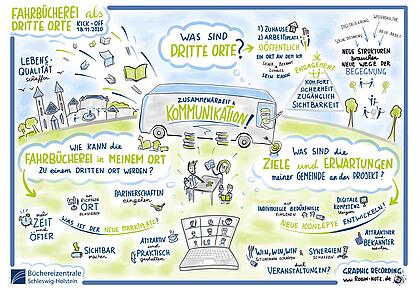 FAHRBÜCHEREI als
DRITTE ORTE
KICK-OFF
18.11.2020
LEBENS-
QUALITÄT
schaffen
WAS SIND
DRITTE ORTE?
1) ZUHAUSE
2) ARBEITSPLATZ
3) ÖFFENTLICH
EIN ORT AN DEM ICH
SEIN KANN
ENGAGEMENT
KOMFORT
SICHERHEIT
ZUGÄNGLICH
SICHTBARKEIT
DIGITALISIERUNG
NEUE STRUKTUREN
brauchen
NEUE WEGE DER
BEGEGNUNG
ZUSAMMENARBEIT &
KOMMUNIKATION!
WIE KANN die
FAHRBÜCHEREI IN MEINEM ORT
ZU einem DRITTEN ORT WERDEN?
am RICHTIGEN
ORT
PLATZIEREN
PARTNERSCHAFTEN
eingehen
mehr ZEIT
und
ÖFTER
WAS IST DER NEUE MARKTPLATZ?
SICHTBAR
machen
ATTRAKTIV
und
PRAKTISCH
gestalten
WAS SIND die
ZIELE und ERWARTUNGEN
meiner GEMEINDE an das PROJEKT?
AUF
INDIVIDUELLE BEDÜRFNISSE
EINGEHEN
DIGITALE
KOMPETENZ
NEUE KONZEPTE ENTWICKELN!
ATTRAKTIVER
und
BEKANNTER
werden
WIN, WIN, WIN
SITUATIONEN SCHAFFEN
SYNERGIEN
SCHAFFEN
durch
VERANSTALTUNGEN?
Büchereizentrale
Schleswig-Holstein
GRAPHIC RECORDING
www.ROBIN-HOTZ.de